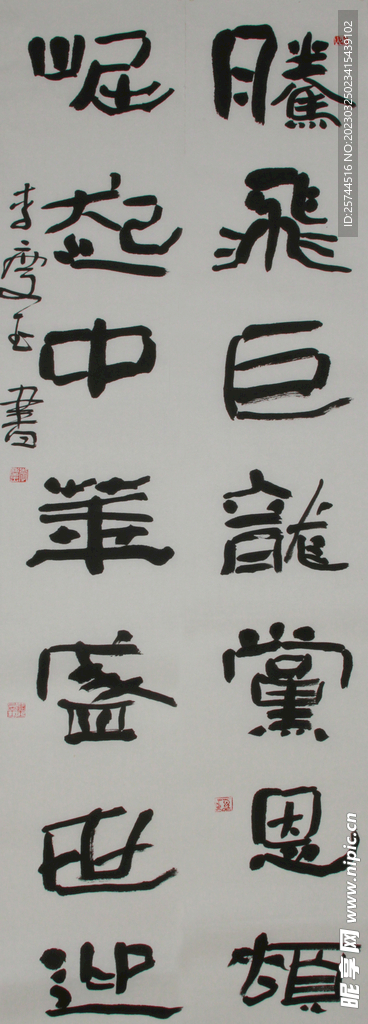 騰飛巨龍黨恩頌
崛起中華盛世迎
李慶玉書
ID:25744516 NO:20230325023415439102
昵享网 www.nipic.cn